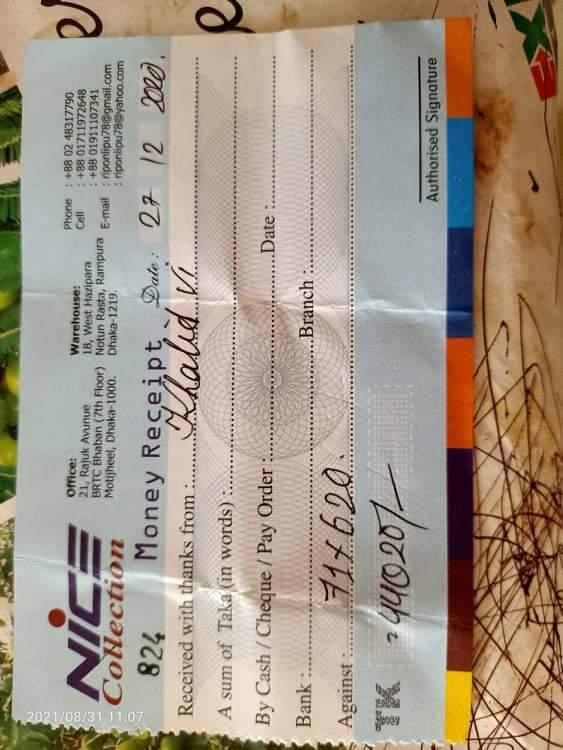 2021/08/31 11:07
NICE
Collection
Office:
21, Rajuk Avunue
BRTC Bhaban (7th Floor)
Motijheel, Dhaka-1000.
Warehouse:
18, West Hazipara
Notun Rasta, Rampura
Dhaka-1219.
Phone : +88 02 48317790
Cell : +88 01711972648
: +88 01911107341
E-mail : riponlipu78@gmail.com
: riponlipu78@yahoo.com
824 Money Receipt Date: 27 12 2020.
Received with thanks from : Khalid vi
A sum of Taka (in words) :
By Cash / Cheque / Pay Order : Date :
Bank : Branch :
Against : 71x620.
TK =44020/-
Authorised Signature